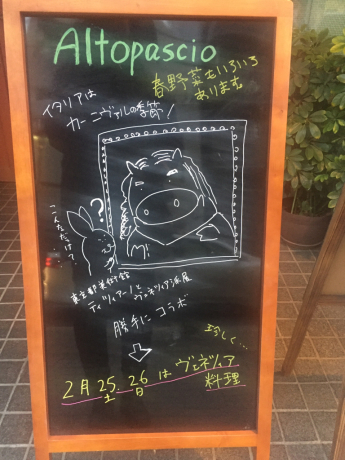 Altopascio
春野菜もいろいろ
あります
イタリアは
カーニヴァルの季節!
?
こんなだっけ?
東京都美術館
ティツィアーノとヴェネツィア派展
勝手に コラボ
珍しく…
2月25 26は ヴェネツィア
土 日
料理